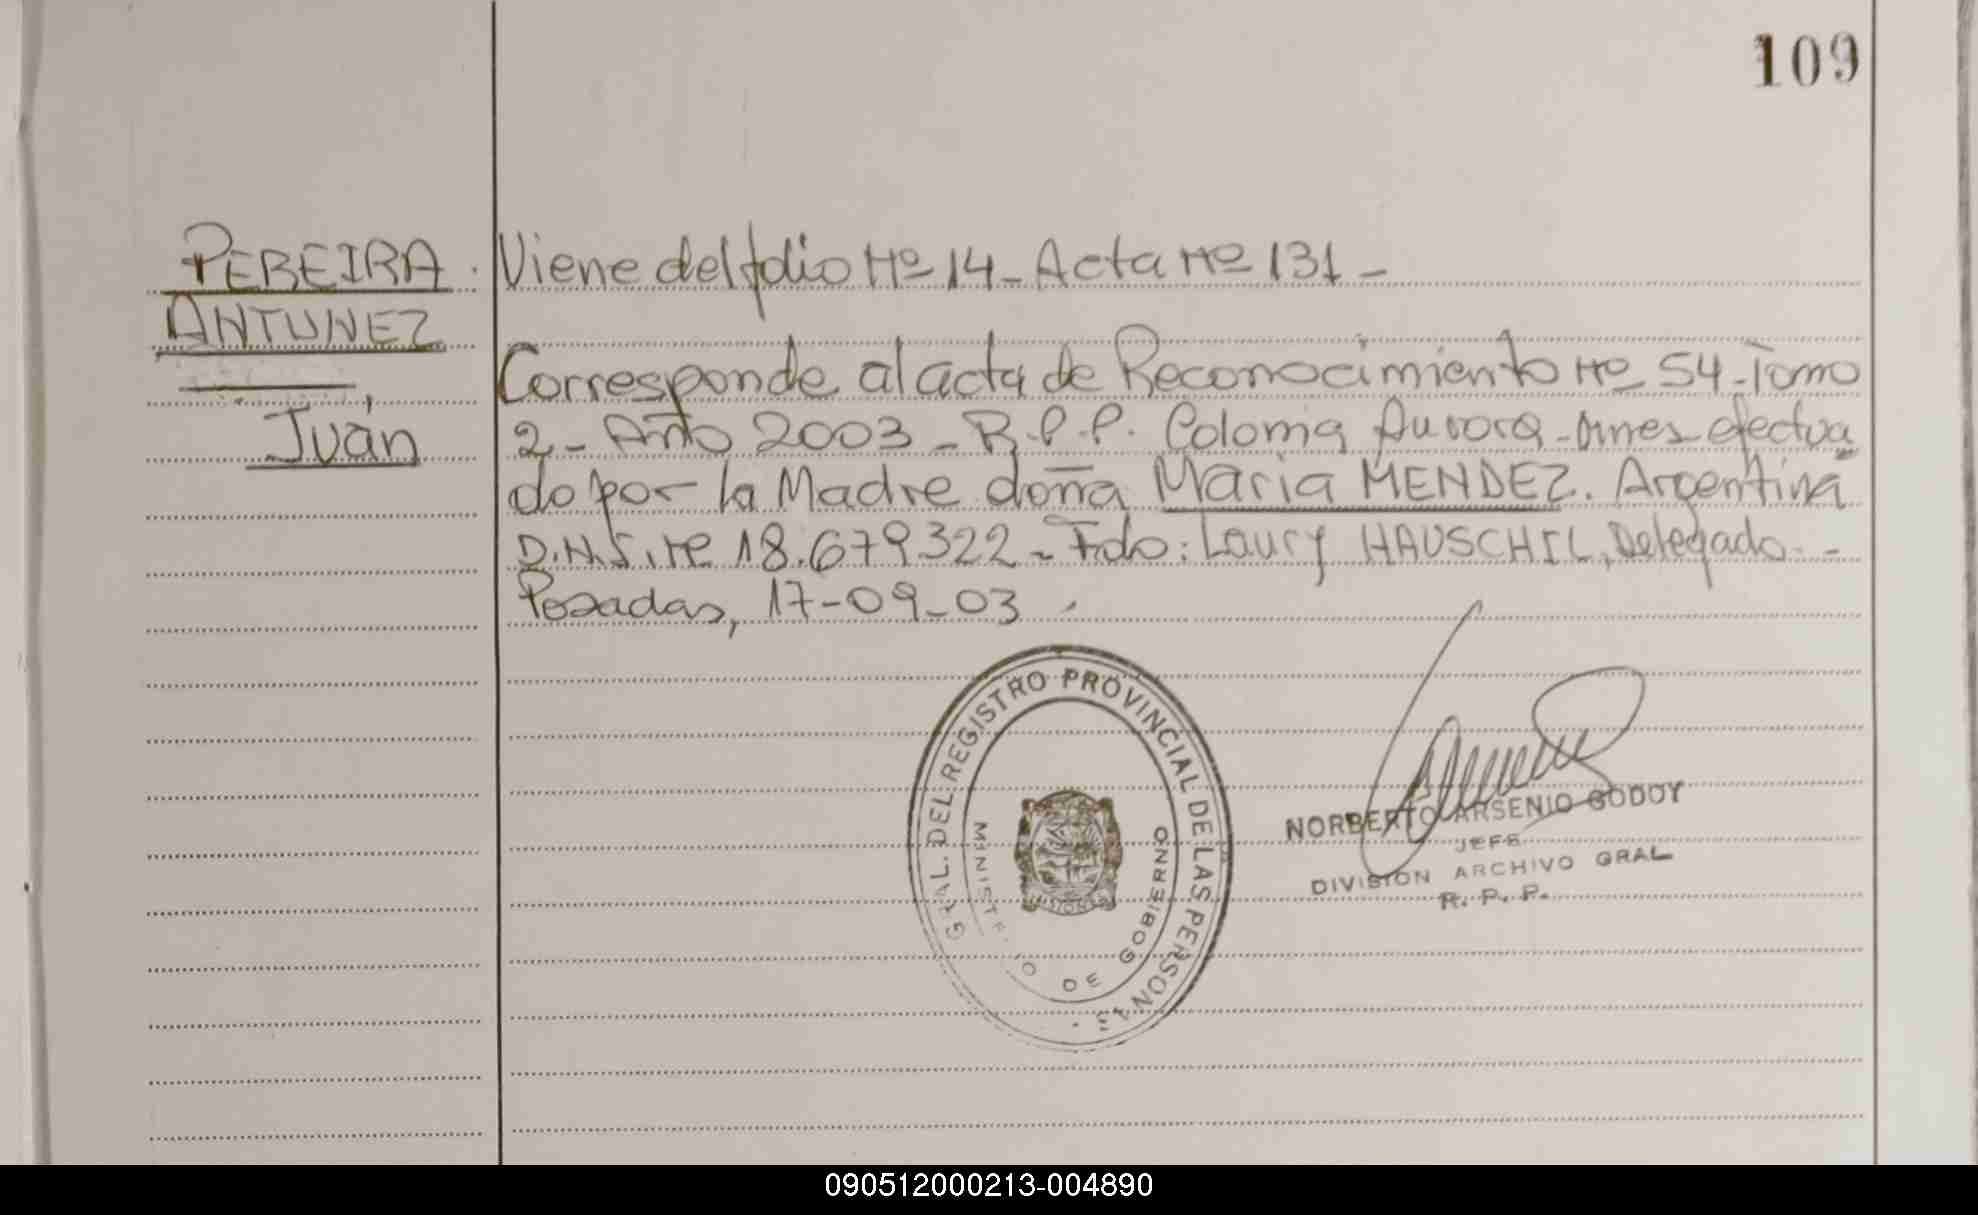 109
PEREIRA
ANTUNEZ
Juán
Viene del folio Nº 14 - Acta Nº 131 -
Corresponde al acta de Reconocimiento Nº 54 - Tomo
2 - Año 2003 - R.P.P. Colonia Aurora - Mnes - efectua
do por la Madre doña Maria MENDEZ. Argentina
D.N.I. Nº 18.679322 - Fdo: Laury HAUSCHIL, Delegado. -
Posadas, 17-09-03.
GRAL. DEL REGISTRO PROVINCIAL DE LAS PERSONAS
MINISTERIO DE GOBIERNO
NORBERTO ARSENIO GODOY
JEFE
DIVISION ARCHIVO GRAL
R. P. P.
090512000213-004890